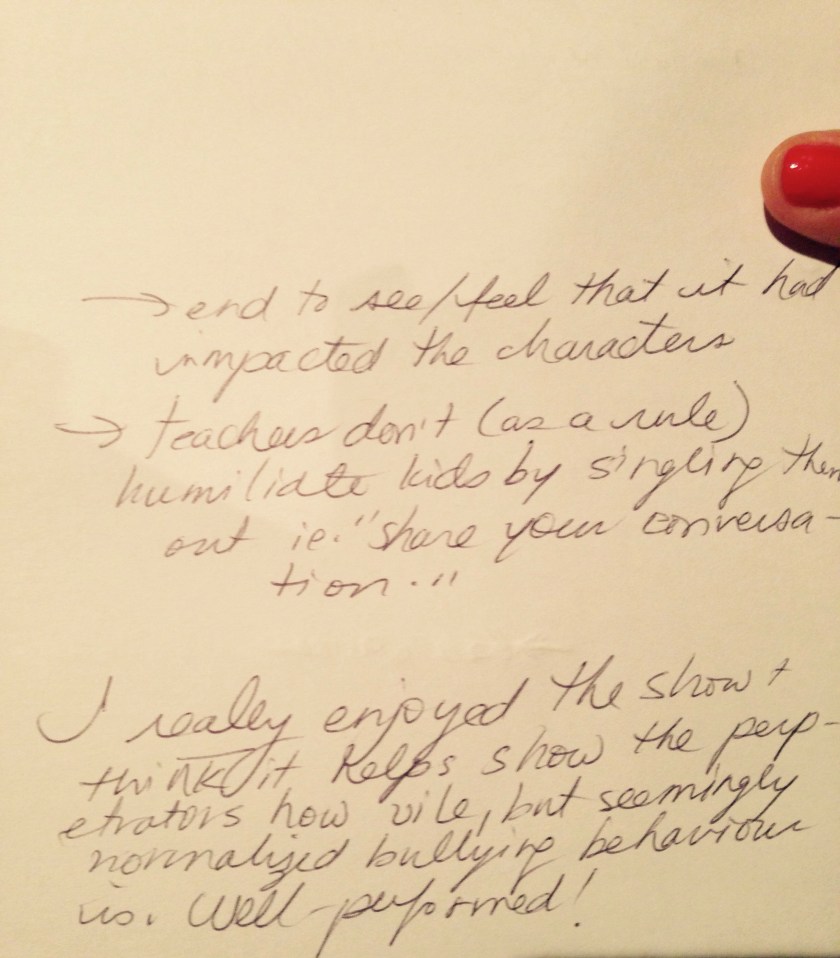 → end to see/feel that it had
impacted the characters
→ teachers don't (as a rule)
humiliate kids by singling them
out ie. "share your conversa-
tion."
I really enjoyed the show +
think it helps show the perp-
etrators how vile, but seemingly
normalized bullying behaviour
is. Well-performed!